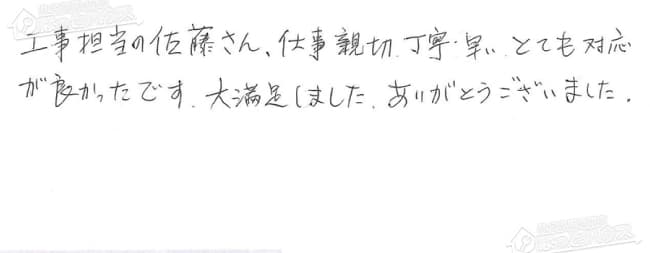 工事担当の佐藤さん、仕事親切、丁寧・早い とても対応
が良かったです。大満足しました。ありがとうございました。